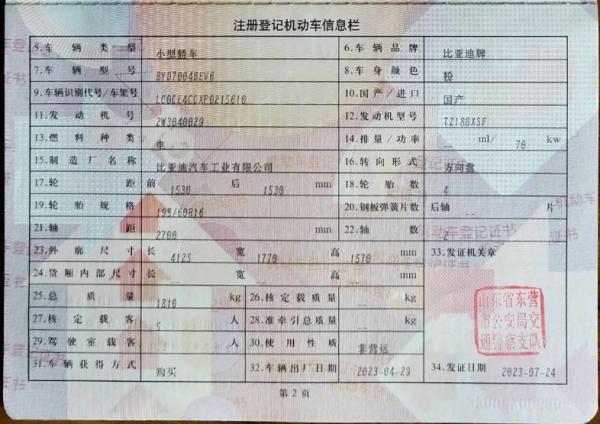 注册登记机动车信息栏
5.车辆类型 小型轿车 6.车辆品牌 比亚迪牌
7.车辆型号 BYD7004BEV6 8.车身颜色 粉
9.车辆识别代号/车架号 LC0CE4CCXP0215610 10.国产/进口 国产
11.发动机号 2W3040029 12.发动机型号 TZ180XSF
13.燃料种类 电 14.排量/功率 -- ml/ 70 kw
15.制造厂名称 比亚迪汽车工业有限公司 16.转向形式 方向盘
17.轮距 前 1530 后 1530 mm 18.轮胎数 4
19.轮胎规格 195/60R16 20.钢板弹簧片数 后轴 -- 片
21.轴距 2700 mm 22.轴数 2
23.外廓尺寸 长 4125 宽 1770 高 1570 mm 33.发证机关章
24.货厢内部尺寸 长 -- 宽 -- 高 -- mm
25.总质量 1810 kg 26.核定载质量 -- kg
27.核定载客 5 人 28.准牵引总质量 -- kg
29.驾驶室载客 -- 人 30.使用性质 非营运
31.车辆获得方式 购买 32.车辆出厂日期 2023-04-29 34.发证日期 2023-07-24
山东省东营
市公安局交
通警察支队
第2页